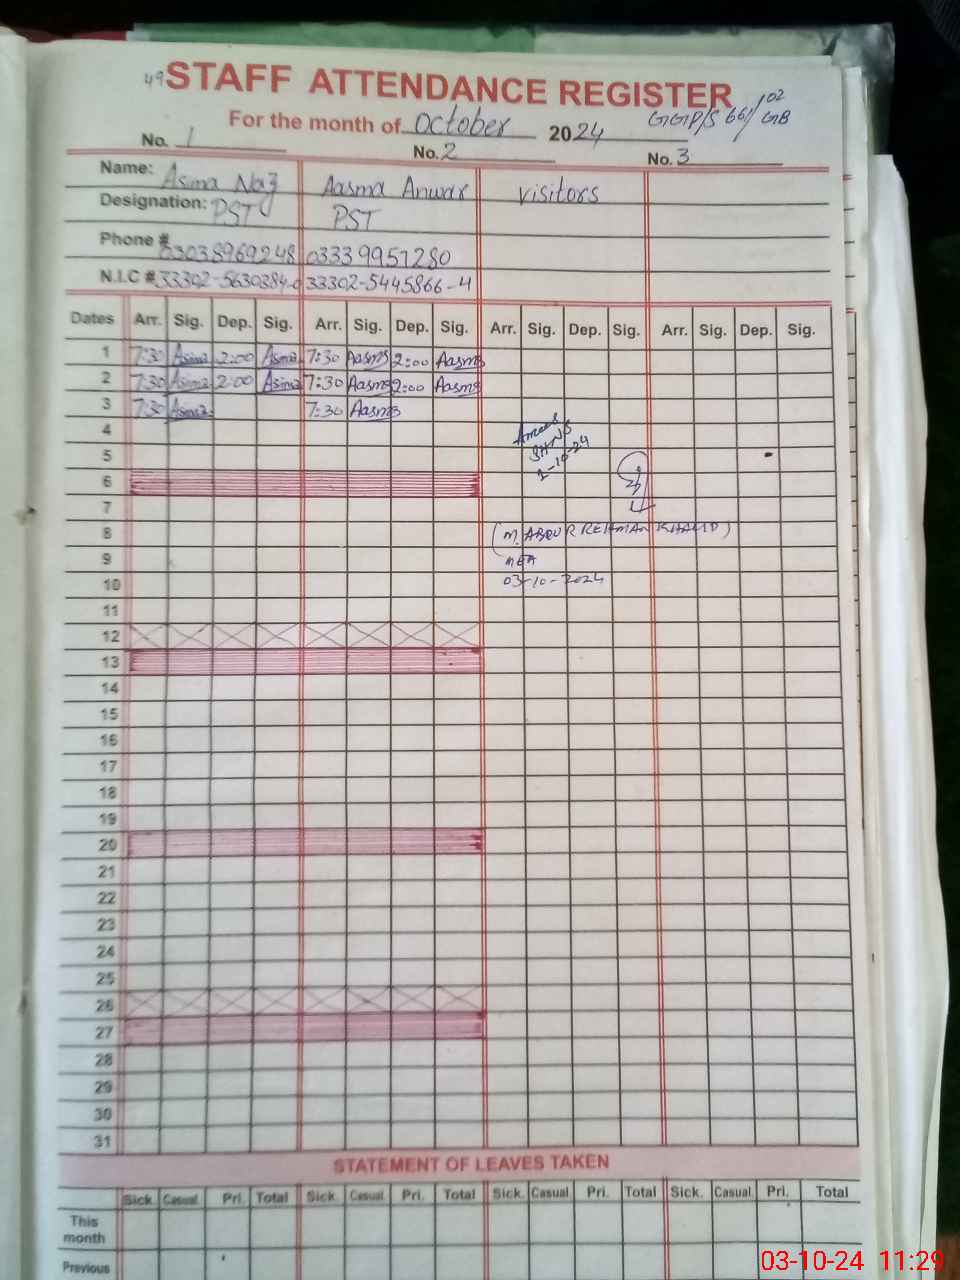 49 STAFF ATTENDANCE REGISTER
For the month of October 2024 GGP/S 661/02 GB
No. 1 No. 2 No. 3
Name: Asima Naz Aasma Anwar visitors
Designation: PST PST
Phone # 03038969248 03339957280
N.I.C # 33302-5630384-0 33302-5445866-4
Dates Arr. Sig. Dep. Sig. Arr. Sig. Dep. Sig. Arr. Sig. Dep. Sig. Arr. Sig. Dep. Sig.
1 7:30 Asima 2:00 Asima 7:30 Aasma 2:00 Aasma
2 7:30 Asima 2:00 Asima 7:30 Aasma 2:00 Aasma
3 7:30 Asima 7:30 Aasma
4
SHNS
5
2-10-24
6
7
8 (M. ABDUR REHMAN KHALID)
9 MEA
10 03-10-2024
11
12
13
14
15
16
17
18
19
20
21
22
23
24
25
26
27
28
29
30
31
STATEMENT OF LEAVES TAKEN
Sick. Casual. Pri. Total Sick. Casual. Pri. Total Sick. Casual. Pri. Total Sick. Casual. Pri. Total
This month
Previous
03-10-24 11:29